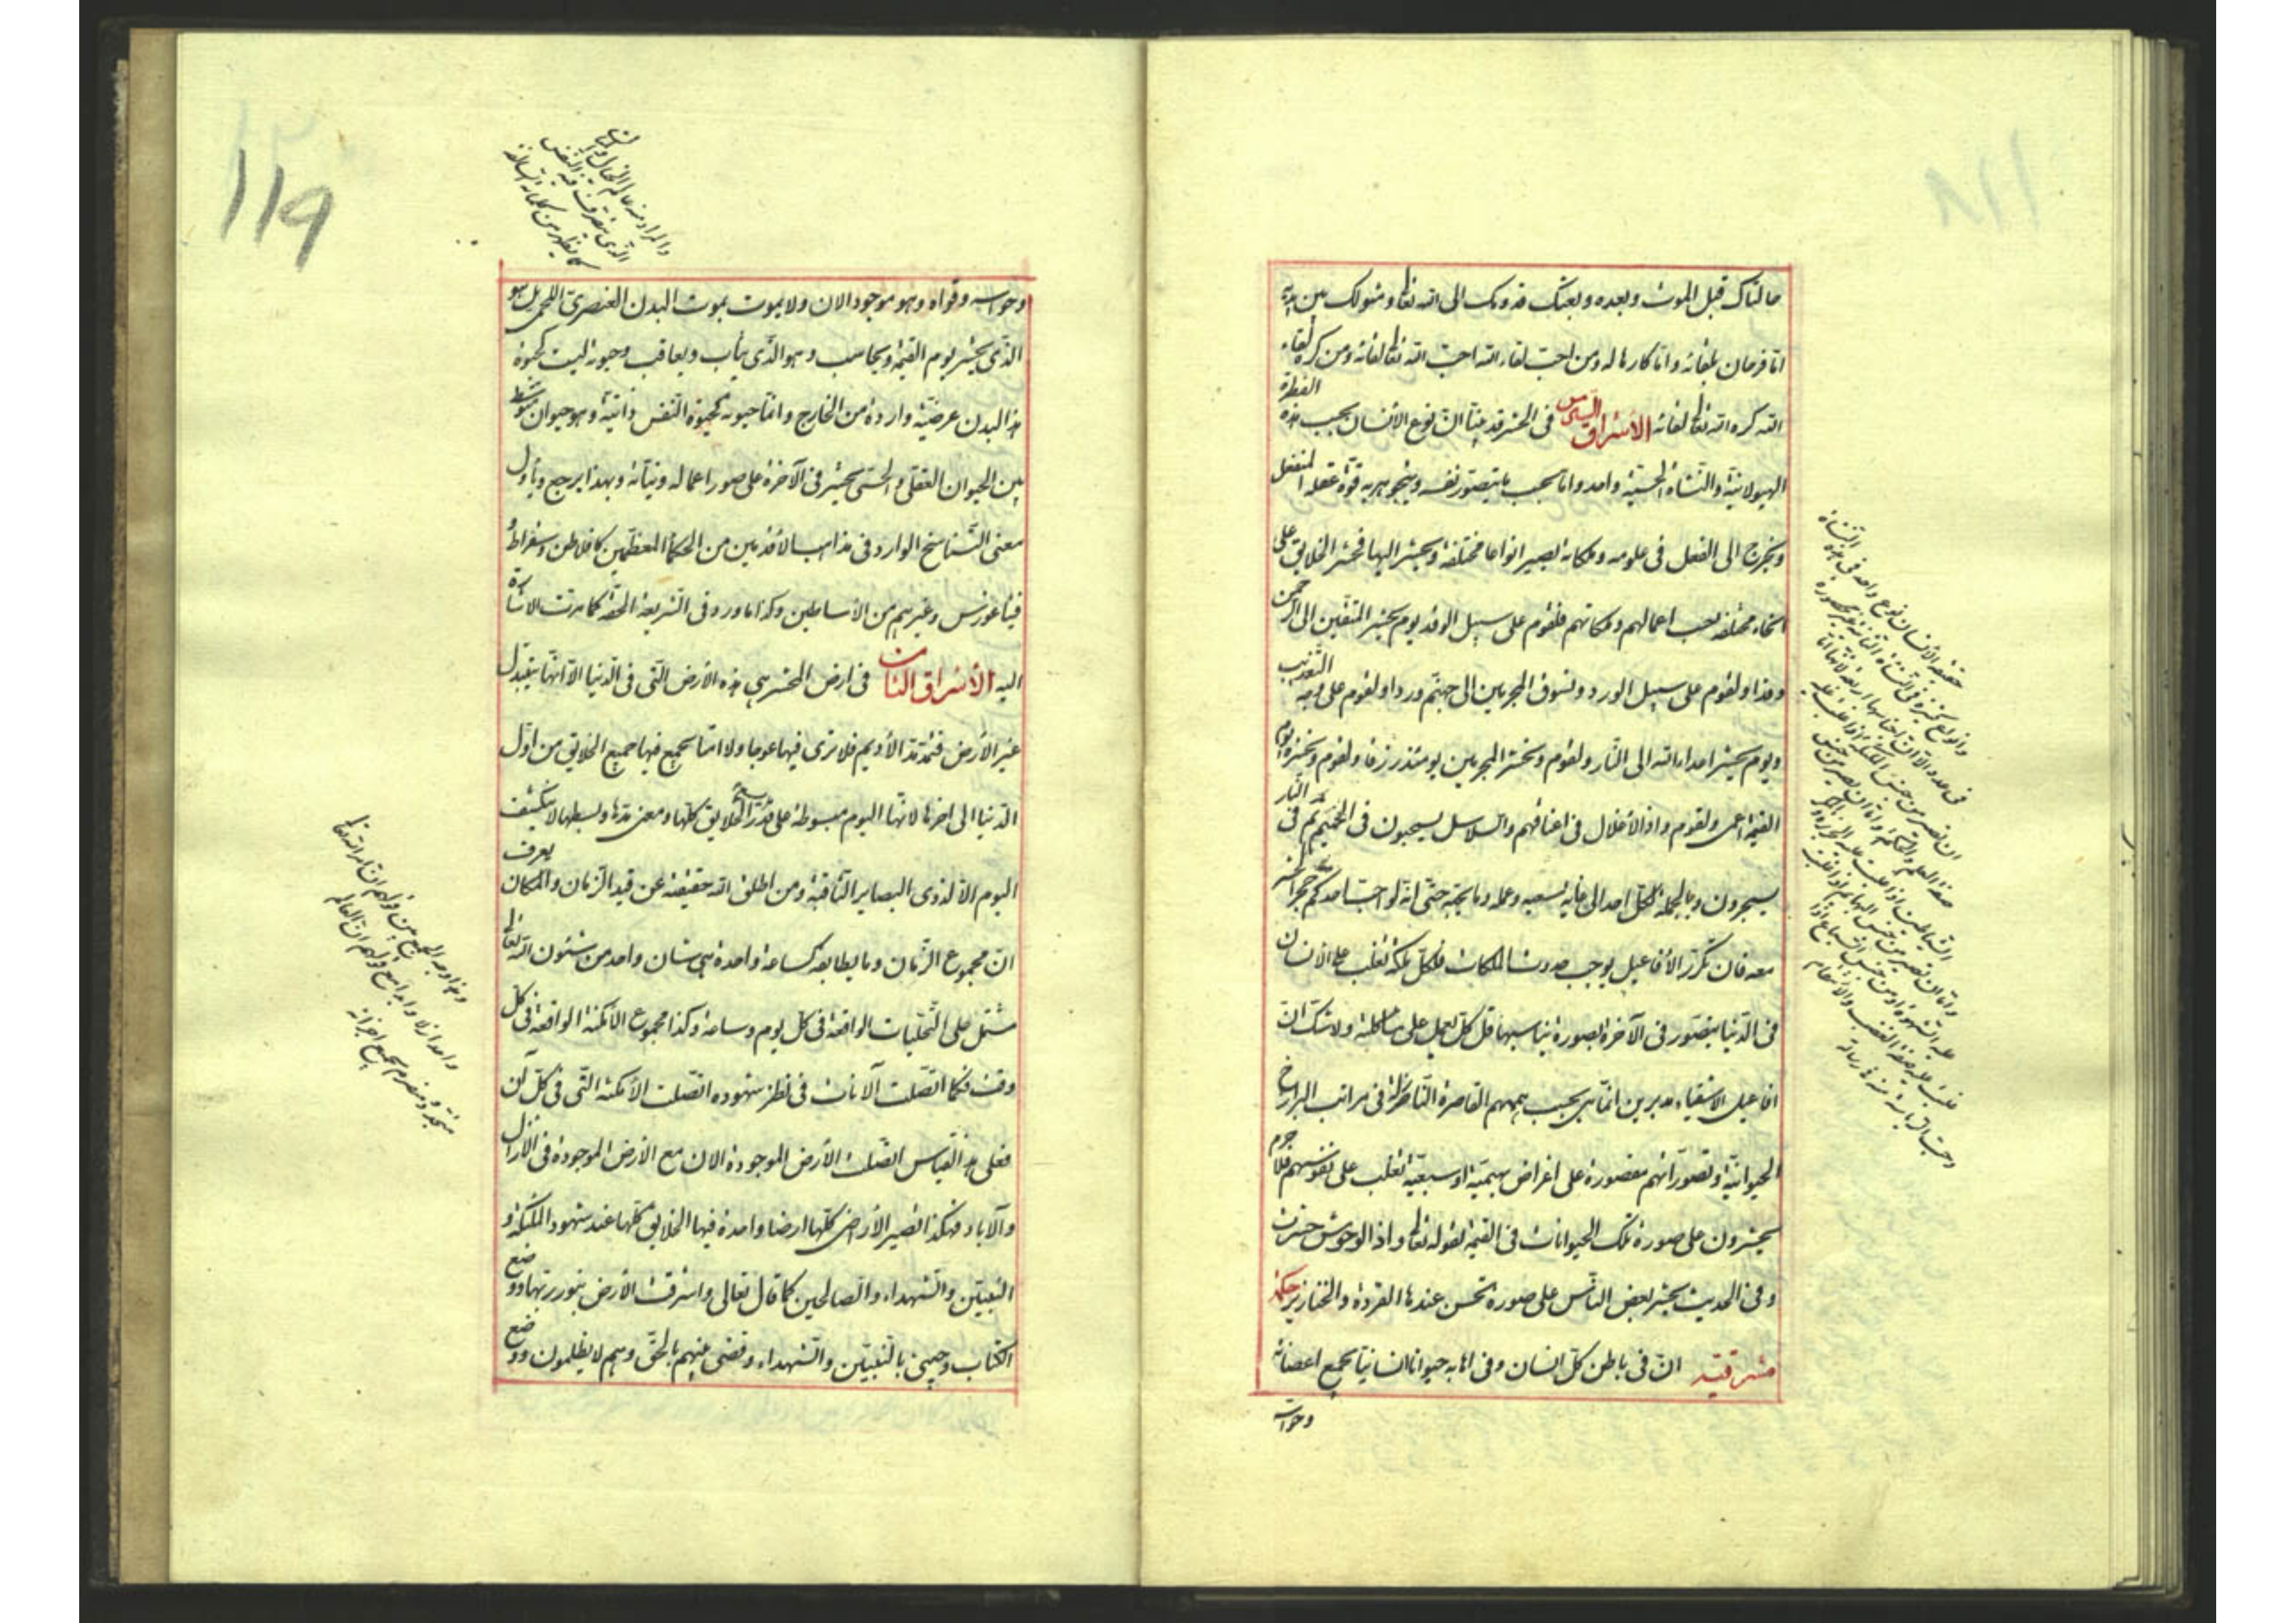 حالتاك قبل الموت وبعده وبعثك قدومك الى الله تعالى ومثولك بين يديه
اما فرحان بلقائه واما كارها له ومن احب لقاء الله احب الله تعالى لقائه ومن كره لقاء
الله كره الله تعالى لقائه الأشراق السابع فى الحشر قد بينا ان نوع الانسان بحسب هذه الفطرة
الهيولانية والنشاة الحسية واحد واما بحسب ما يتصور نفسه ويتجوهر به قوة عقله المنفعل
ويخرج الى الفعل فى علومه وملكاته يصير انواعا مختلفة ويحشر اليها فحشر الخلايق على
انحاء مختلفة بحسب اعمالهم وملكاتهم فلقوم على سبيل الوفد يوم يحشر المتقين الى الرحمن
وفدا ولقوم على سبيل الورد ونسوق المجرمين الى جهنم وردا ولقوم على وجه التعذيب
ويوم يحشر اعداء الله الى النار ولقوم ونحشر المجرمين يومئذ زرقا ولقوم ونحشره يوم
القيمة اعمى ولقوم واذ الأغلال فى اعناقهم والسلاسل يسحبون فى الحميم ثم فى النار
يسجرون وبالجملة لكل احد الى غاية سعيه وعمله وما يحبه حتى انه لو احب احدكم حجرا لحشر
معه فان تكرر الأفاعيل يوجب حدوث الملكات فكل ملكة تغلب على الانسان
فى الدنيا يتصور فى الآخرة بصورة يناسبها قل كل يعمل على شاكلته ولا شك ان
افاعيل الاشقياء مدبرين انما هى بحسب هممهم القاصرة النازلة فى مراتب البرازخ
الحيوانية وتصوراتهم مقصورة على اغراض بهيمية او سبعية تغلب على نفوسهم فلا جرم
يحشرون على صورة تلك الحيوانات فى القيمة لقوله تعالى واذ الوحوش حشرت
وفى الحديث يحشر بعض الناس على صورة تحسن عندها القردة والخنازير حكمة
مشرقية ان فى باطن كل انسان وفى اهابه حيوانا انسانيا بجميع اعضائه
وحواسه
119
والمراد منه عالم الخيال
الذى يتصرف فيه النفس
كما يظهر من كلماته السالفة
وحواسه وقواه وهو موجود الان ولا يموت بموت البدن العنصرى اللحمى بل هو
الذى يحشر يوم القيمة ويحاسب وهو الذى يثاب ويعاقب وحيوته ليست كحيوة
هذا البدن عرضية واردة من الخارج وانما حيوته كحيوة النفس ذاتية وهو حيوان متوسط
بين الحيوان العقلى والحسى يحشر فى الآخرة على صور اعماله ونياته وبهذا يرجع ويأول
معنى التناسخ الوارد فى مذاهب الأقدمين من الحكماء المعظمين كافلاطن وسقراط و
فيثاغورس وغيرهم من الأساطين وكذا ما ورد فى الشريعة الحقة كما مرت الاشارة
اليه الأشراق الثامن فى ارض المحشر هى هذه الأرض التى فى الدنيا الا انها يتبدل
غير الأرض فتمد مد الأديم فلا ترى فيها عوجا ولا امتا يجمع فيها جميع الخلايق من اول
الدنيا الى اخرها لانها اليوم مبسوطة على قدر يسع الخلايق كلها ومعنى مدها وبسطها لا ينكشف
اليوم الا لذوى البصاير الثاقبة ومن اطلق الله حقيقته عن قيد الزمان والمكان يعرف
ان مجموع الزمان وما يطابقه كساعة واحدة هى شان واحد من شئون الله تعالى
مشتمل على التجليات الواقعة فى كل يوم وساعة وكذا مجموع الامكنة الواقعة فى كل
وقت فكما اتصلت الآنات فى نظر شهوده اتصلت الأمكنة التى فى كل آن
فعلى هذا القياس اتصلت الأرض الموجودة الان مع الارض الموجودة فى الازال
والآباد فهكذا تصير الأراضى كلها ارضا واحدة فيها الخلايق كلها عند شهود الملئكة و
النبيين والشهداء والصالحين كما قال تعالى واشرقت الأرض بنور ربها ووضع
الكتاب وجيئ بالنبيين والشهداء وقضى بينهم بالحق وهم لا يظلمون ووضع